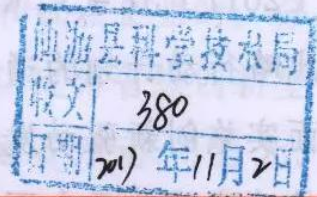 仙游县科学技术局
收文 380
日期 2017年11月2日